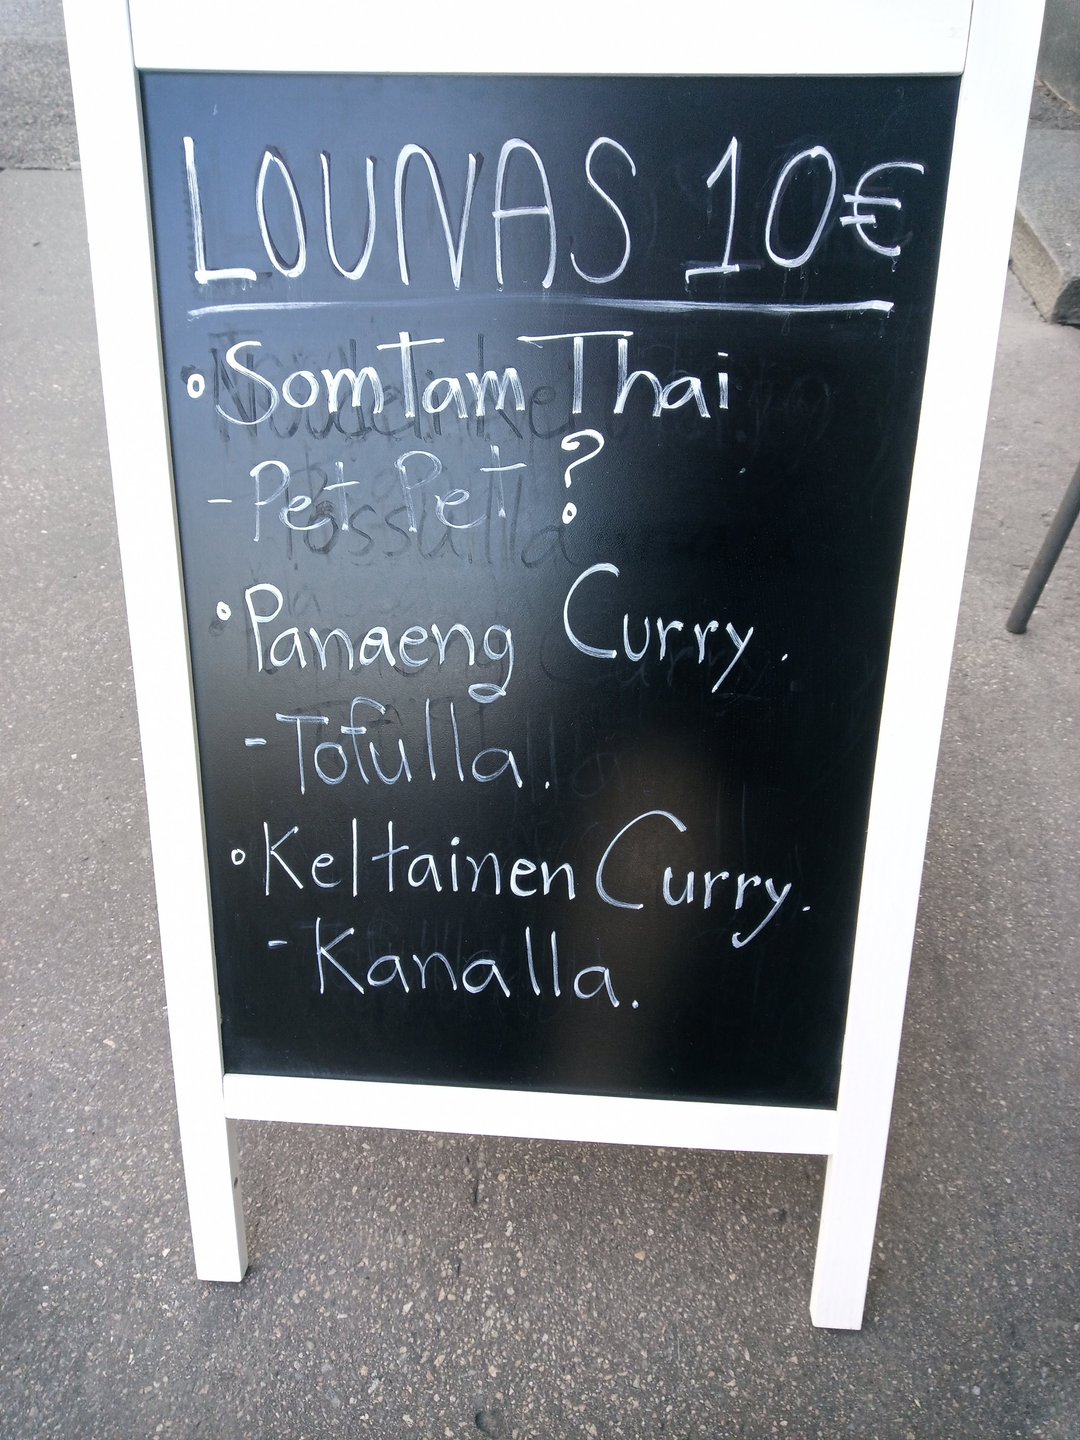 LOUNAS 10€
• Som Tam Thai
- Pet Pet ?
• Panaeng Curry.
- Tofulla.
• Keltainen Curry.
- Kanalla.